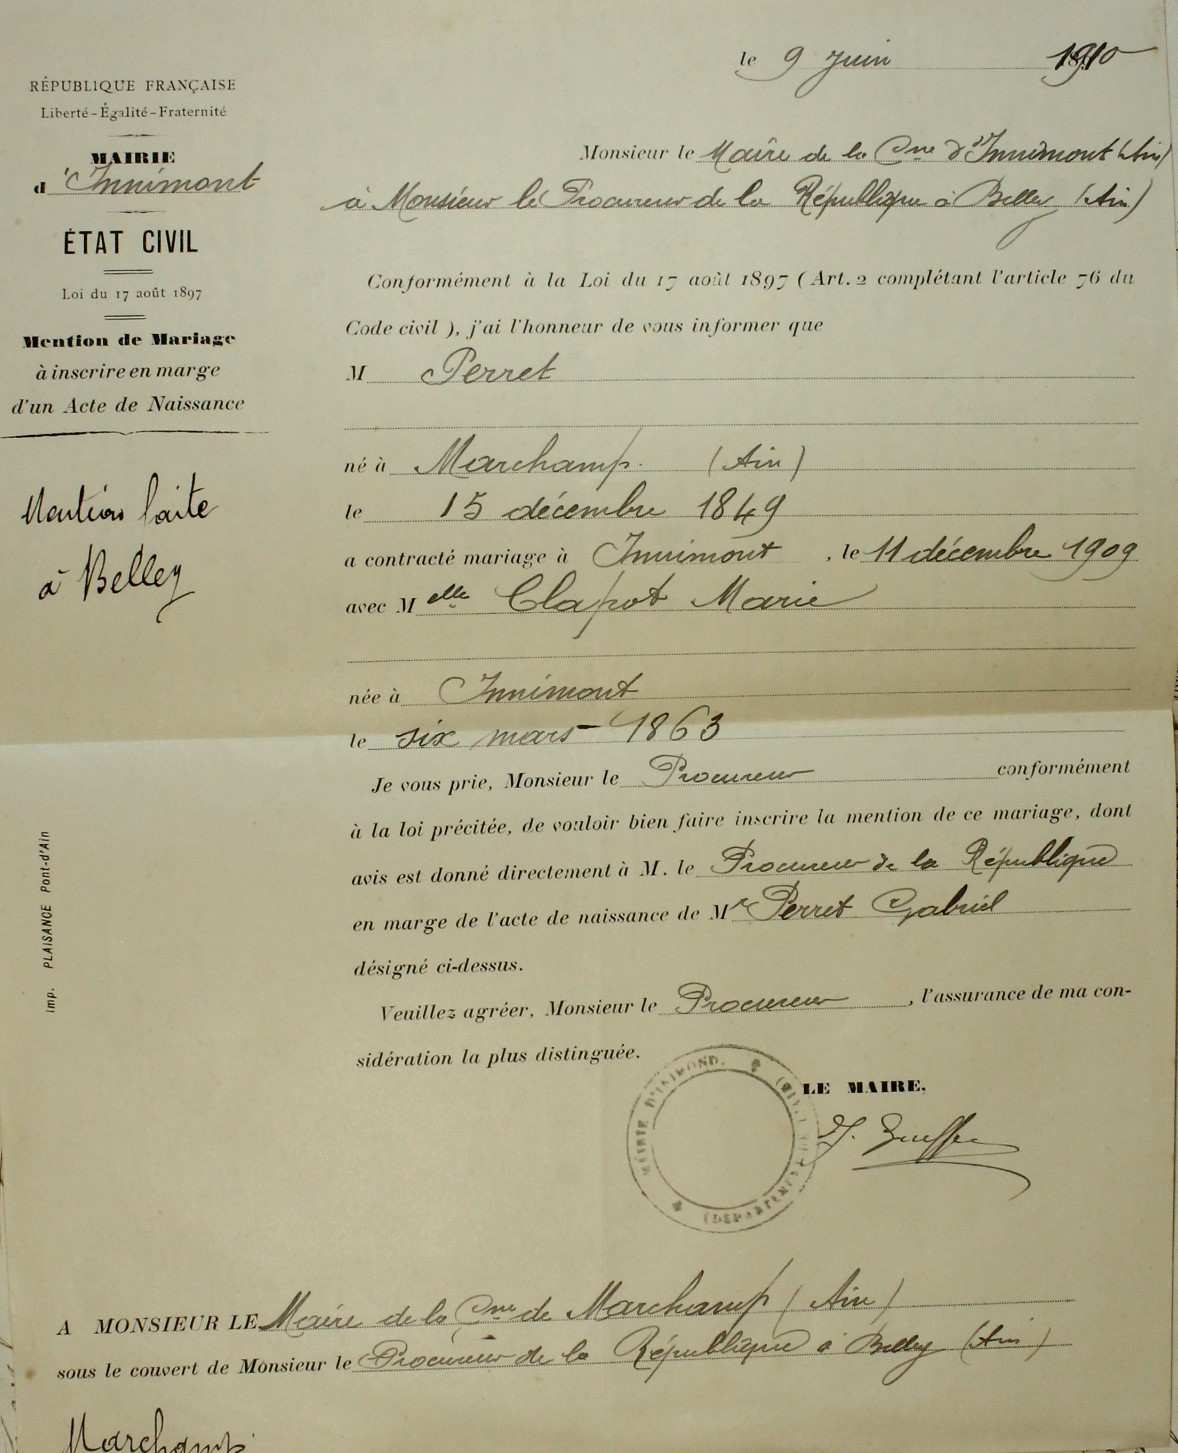 le 9 Juin 1910
RÉPUBLIQUE FRANÇAISE
Liberté-Égalité-Fraternité
MAIRIE
d'Innimont
ÉTAT CIVIL
Loi du 17 août 1897
Mention de Mariage
à inscrire en marge
d'un Acte de Naissance
Mention faite
à Belley
Imp. PLAISANCE Pont-d'Ain
Monsieur le Maire de la Cne d'Innimont (Ain)
à Monsieur le Procureur de la République à Belley (Ain)
Conformément à la Loi du 17 août 1897 (Art. 2 complétant l'article 76 du
Code civil), j'ai l'honneur de vous informer que
M Perret
né à Marchamp. (Ain)
le 15 décembre 1849
a contracté mariage à Innimont, le 11 décembre 1909
avec Melle Clapot Marie
née à Innimont
le six mars 1863
Je vous prie, Monsieur le Procureur conformément
à la loi précitée, de vouloir bien faire inscrire la mention de ce mariage, dont
avis est donné directement à M. le Procureur de la République
en marge de l'acte de naissance de Mr Perret Gabriel
désigné ci-dessus.
Veuillez agréer, Monsieur le Procureur, l'assurance de ma con-
sidération la plus distinguée.
LE MAIRE,
MAIRIE D'INIMOND.
A MONSIEUR LE Maire de la Cne de Marchamp (Ain)
sous le couvert de Monsieur le Procureur de la République à Belley (Ain)
Marchamp